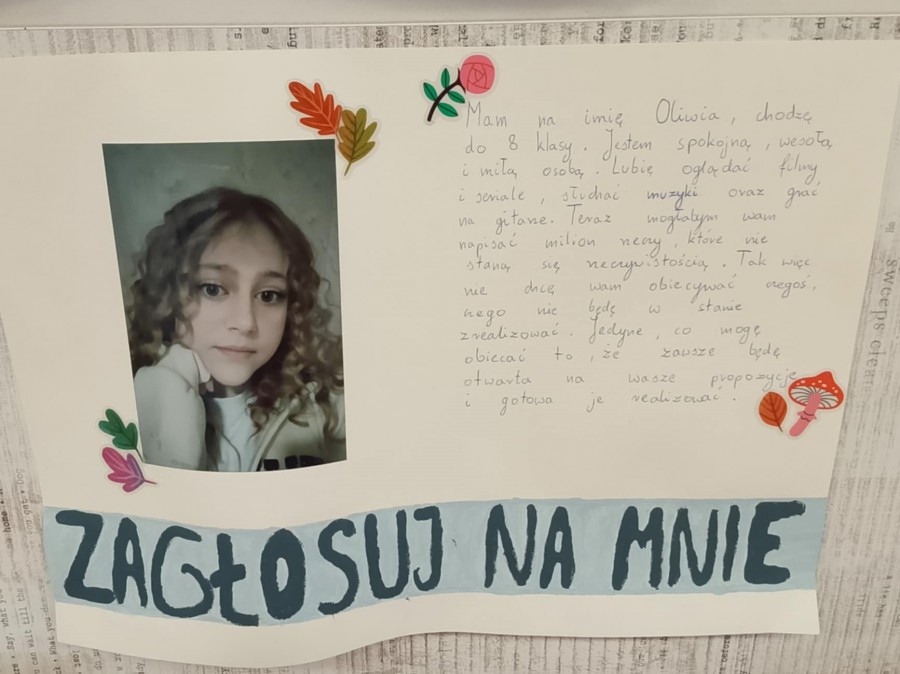 Mam na imię Oliwia, chodzę
do 8 klasy. Jestem spokojną, wesołą
i miłą osobą. Lubię oglądać filmy
i seriale, słuchać muzyki oraz grać
na gitarze. Teraz mogłabym wam
napisać milion rzeczy, które nie
staną się rzeczywistością. Tak więc
nie chcę wam obiecywać czegoś,
czego nie będę w stanie
zrealizować. Jedyne, co mogę
obiecać to, że zawsze będę
otwarta na wasze propozycje
i gotowa je realizować.
ZAGŁOSUJ NA MNIE